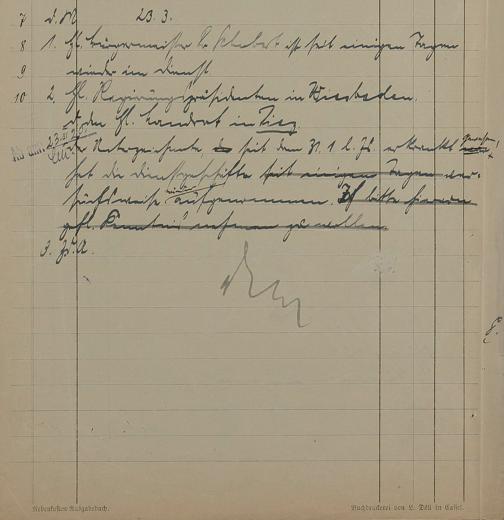 7 d. M 23. 3.
8 1. H. Bürgermeister K. Schubert ist seit einigen Tagen
9 wieder im Dienst
10 2. H. Regierungspräsidenten in Wiesbaden.
d. den H. Landrat in Diez
Ab am: 23.
Der Unterzeichnete, seit dem 31. 1. l. Js. erkrankt gewesen!
hat die Dienstgeschäfte seit einigen Tagen ver-
suchsweise wieder aufgenommen. Ich bitte hiervon
gefl. Kenntnis nehmen zu wollen.
3. Z. d. A.
Nebenkosten Ausgabebuch.
Buchdruckerei von L. Döll in Cassel.